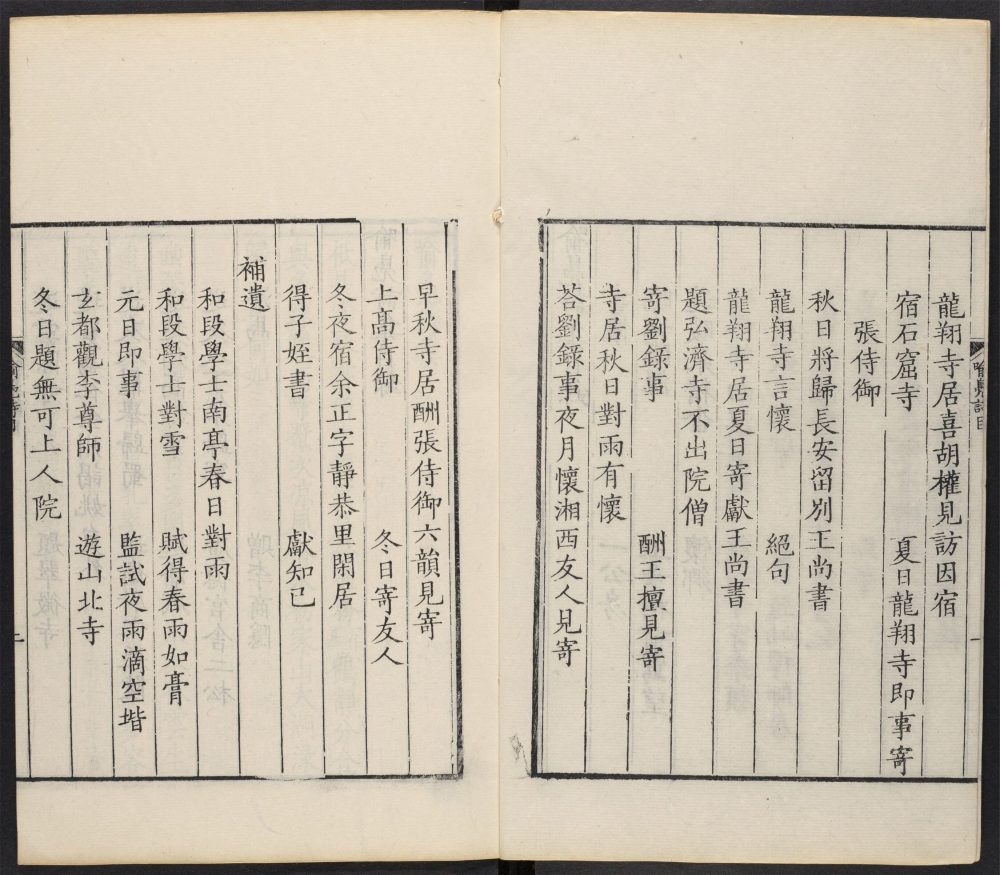 龍翔寺居喜胡權見訪因宿
宿石窟寺 夏日龍翔寺即事寄
張侍御
秋日將歸長安留別王尚書
龍翔寺言懷 絕句
龍翔寺居夏日寄獻王尚書
題弘濟寺不出院僧
寄劉錄事 酬王擅見寄
寺居秋日對雨有懷
荅劉錄事夜月懷湘西友人見寄
早秋寺居酬張侍御六韻見寄
上高侍御 冬日寄友人
冬夜宿余正字靜恭里閑居
得子姪書 獻知己
補遺
和段學士南亭春日對雨
和段學士對雪 賦得春雨如膏
元日即事 監試夜雨滴空堦
玄都觀李尊師 遊山北寺
冬日題無可上人院